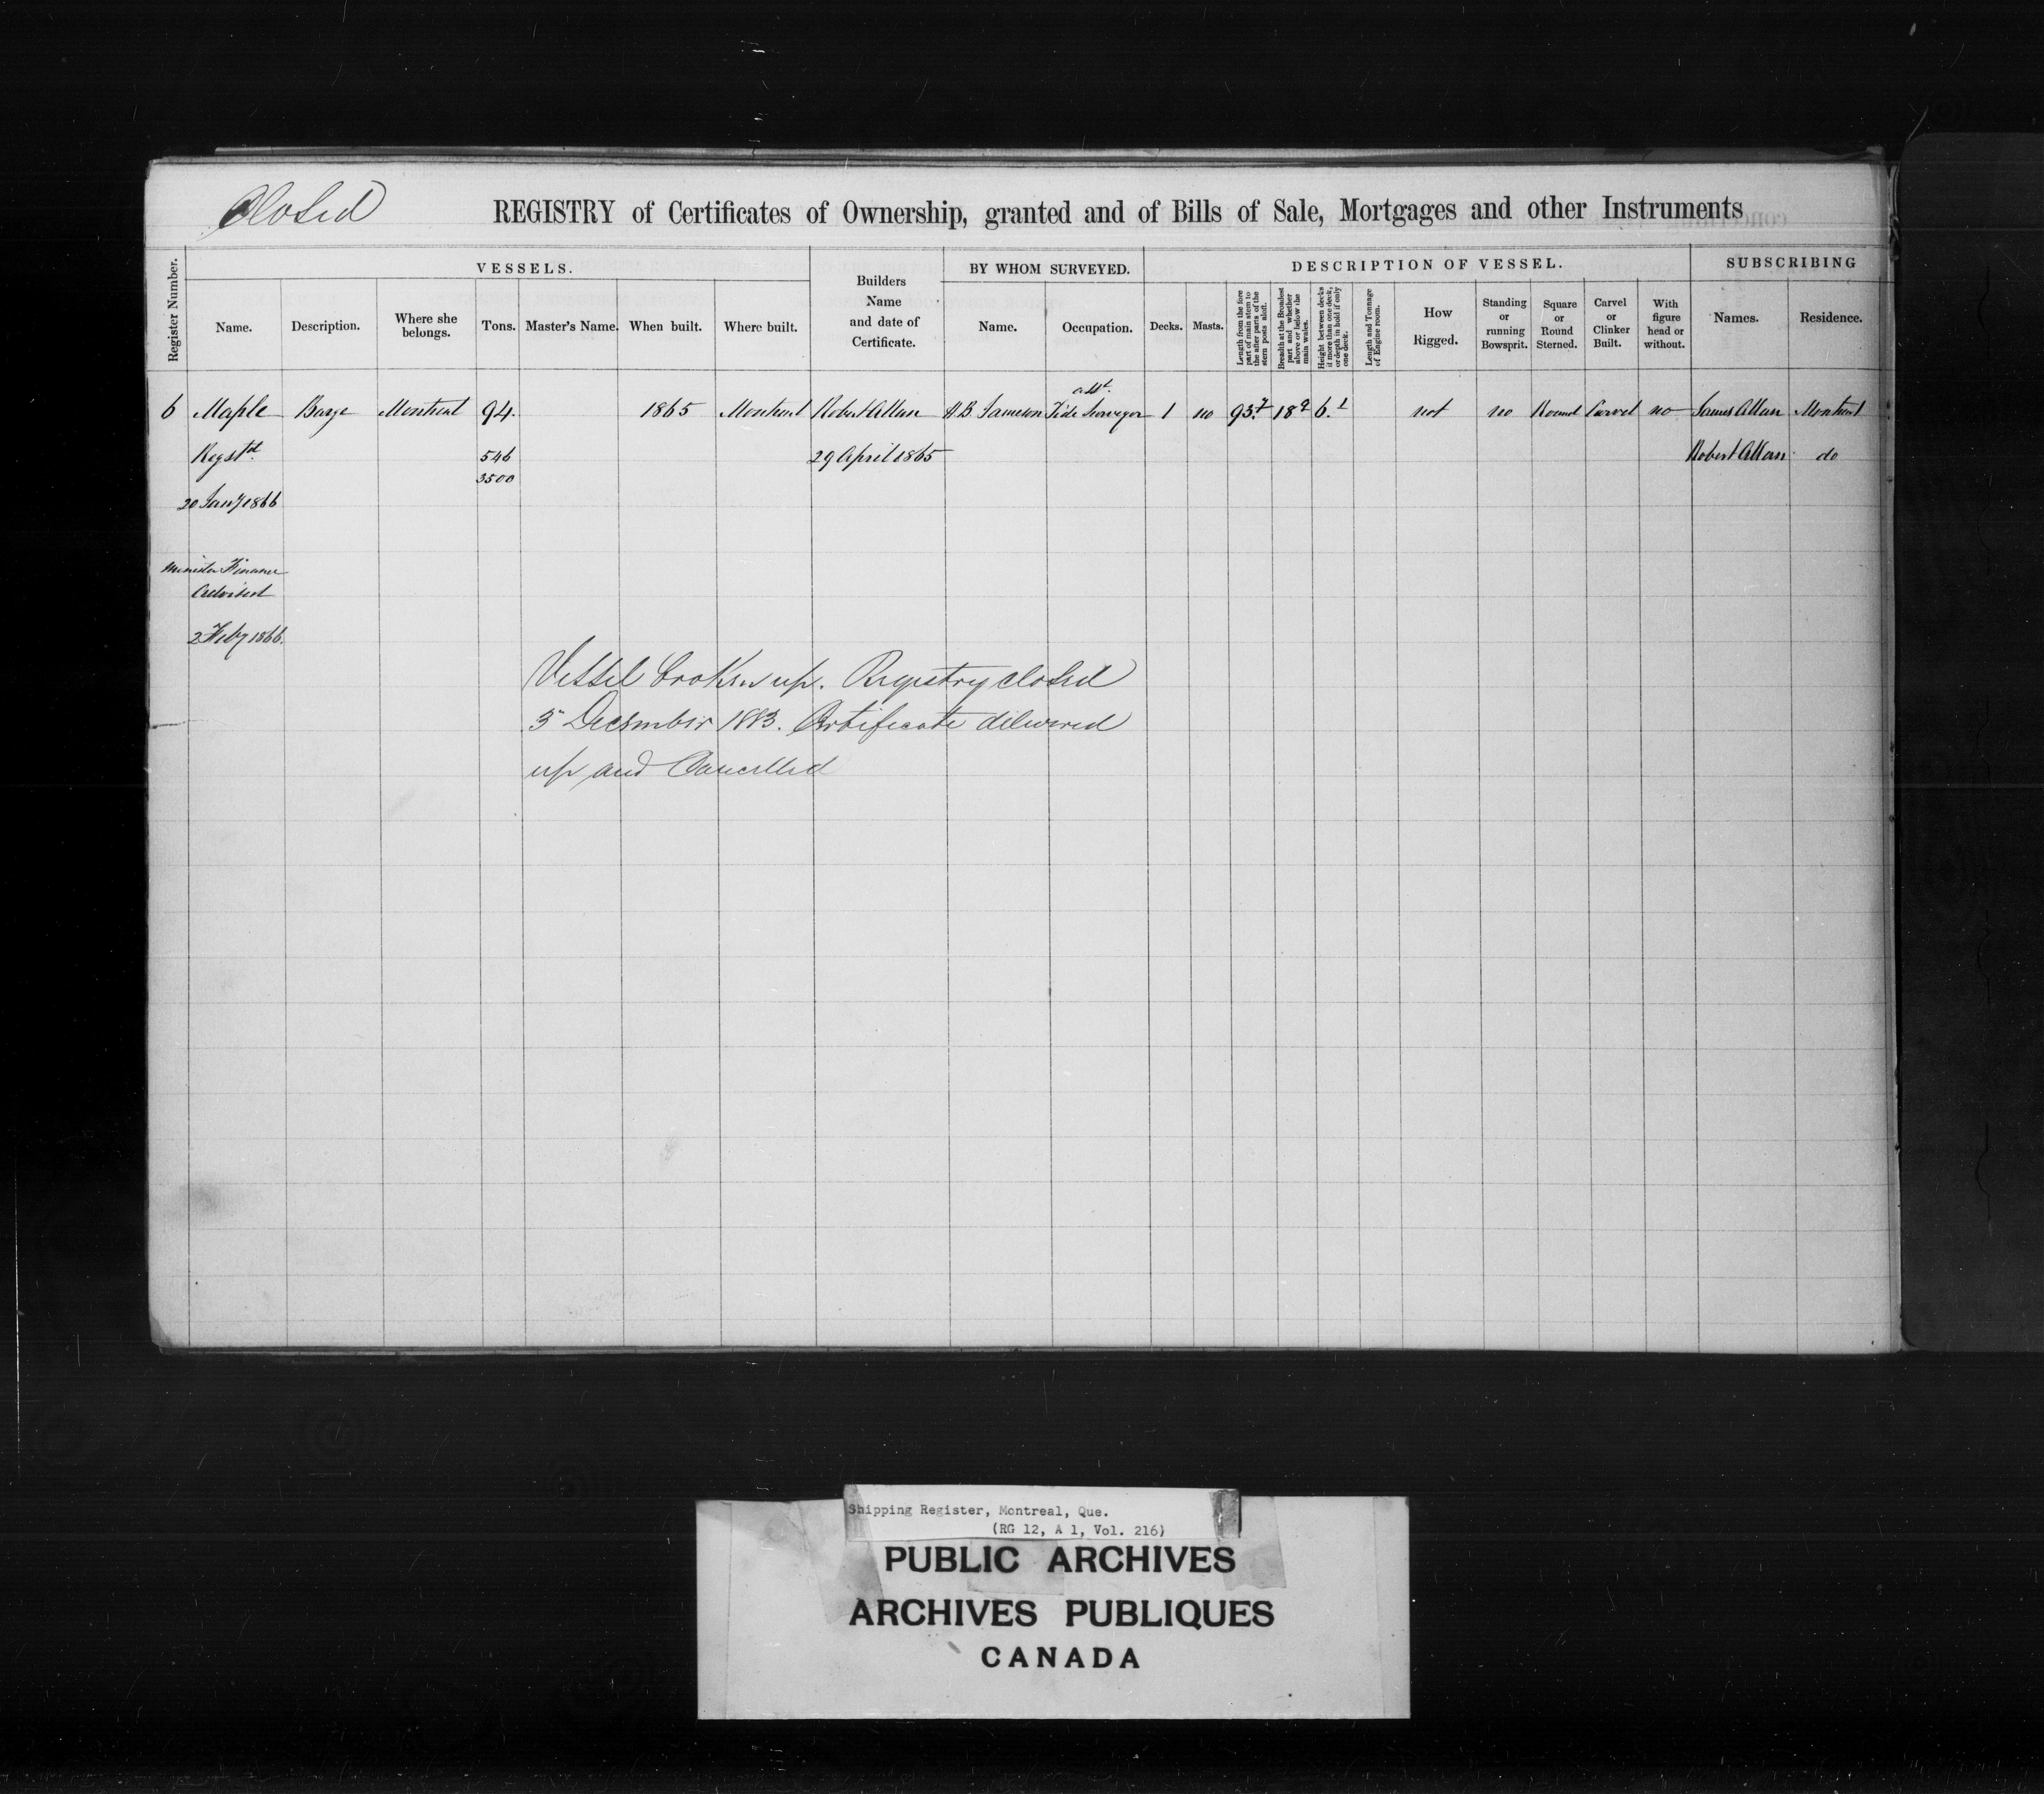 Closed
REGISTRY of Certificates of Ownership, granted and of Bills of Sale, Mortgages and other Instruments
Register Number.
VESSELS.
Name.
Description.
Where she belongs.
Tons.
Master's Name.
When built.
Where built.
Builders Name and date of Certificate.
BY WHOM SURVEYED.
Name.
Occupation.
DESCRIPTION OF VESSEL.
Decks.
Masts.
Length from the fore part of main stem to the after parts of the stern posts aloft.
Breadth at the Broadest part and whether above or below the main wales.
Height between decks if more than one deck, or depth in hold if only one deck.
Length and Tonnage of Engine room.
How Rigged.
Standing or running Bowsprit.
Square or Round Sterned.
Carvel or Clinker Built.
With figure head or without.
SUBSCRIBING
Names.
Residence.
asst.
6 Maple Barge Montreal 94. 1865 Montreal Robert Allan H.B. Jameson Tide Surveyor 1 no 93.7 18.9 6.1 not no Round Carvel no James Allan Montreal
Regstd 546 29 April 1865 Robert Allan do
3500
20 Jany 1866
Minister Finance
Advised
2 Feby 1866.
Vessel broken up. Registry closed
5" December 1883. Certificate delivered
up and Cancelled
Shipping Register, Montreal, Que.
(RG 12, A 1, Vol. 216)
PUBLIC ARCHIVES
ARCHIVES PUBLIQUES
CANADA